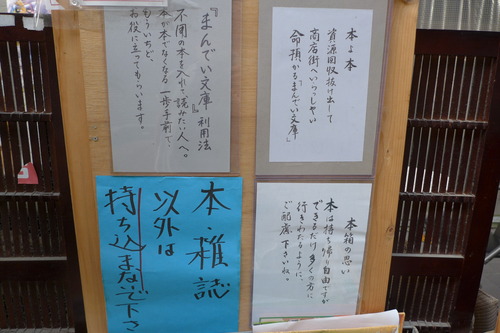 本よ本
資源回収抜け出して
商店街へいらっしゃい
命預かる「まんでい文庫」
『まんでい文庫』利用法
不用の本を入れて読みたい人へ。
本が本でなくなる一歩手前で、
もういちど、
お役に立ってもらいます。
本箱の思い
本は持ち帰り自由ですが
できるだけ多くの方に
行きわたるように、
ご配慮下さいね。
本・雑誌
以外は
持ち込まないで下さ